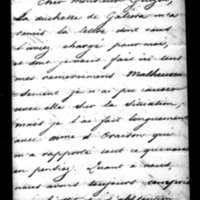 Cher Monsieur
La duchesse de Galliera m'a
remis la lettre dont vous
l'aviez chargé pour moi,
et dont je vous fais ici tous
mes remerciements Malheureu
sement je n'ai pu causer
avec elle sur la situation,
mais je l'ai fait longuement
avec Mme d'
m'a rapporté tout ce que vous
en pensiez. Quant à nous,
nous avons toujours compris